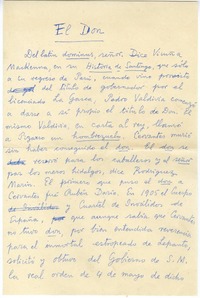 El Don
Del latín dominus, señor. Dice Vicuña
Mackenna, en su Historia de Santiago, que sólo
a su regreso de Perú, cuando vino provisto
del título de gobernador por el
licenciado La Gasca, Pedro Valdivia comenzó
a darse a sí propio el título de Don. El
mismo Valdivia, en carta al rey, llamó
a Pizarro un Cervantes murió
sin haber conseguido el don. El don se
reservó para los caballeros y el señor
para los meros hidalgos, dice Rodríguez
Marín. El primero que puso el don a
Cervantes fue Rubén Darío. En 1905 el Cuerpo
y Cuartel de Inválidos de
España, que aunque sabía que Cervantes
no tuvo don, por bien entendida reverencia
para el inmortal estropeado de Lepanto,
solicitó y obtuvo del Gobierno de S.M.
la real orden de 4 de mayo de dicho